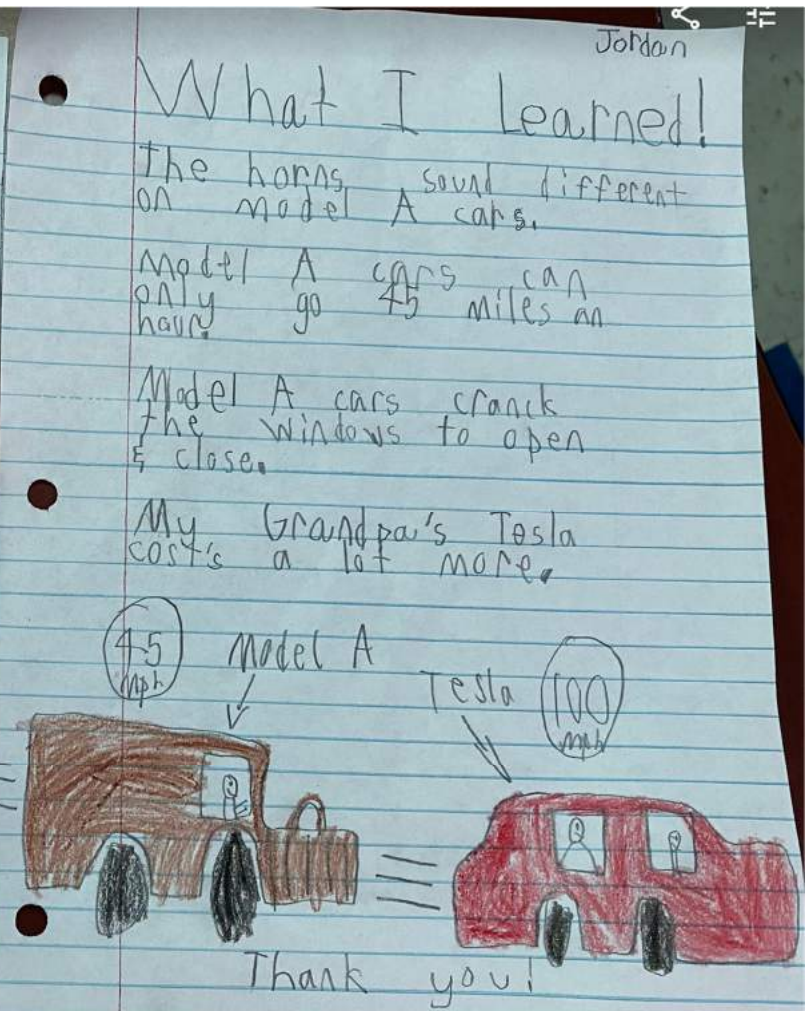 Jordan
What I Learned!
The horns sound different
on model A cars.
Model A cars can
only go 45 miles an
hour.
Model A cars cranck
the windows to open
& close.
My Grandpa's Tesla
cost's a lot more.
45 Model A
mph
Tesla 100
mph
Thank you!